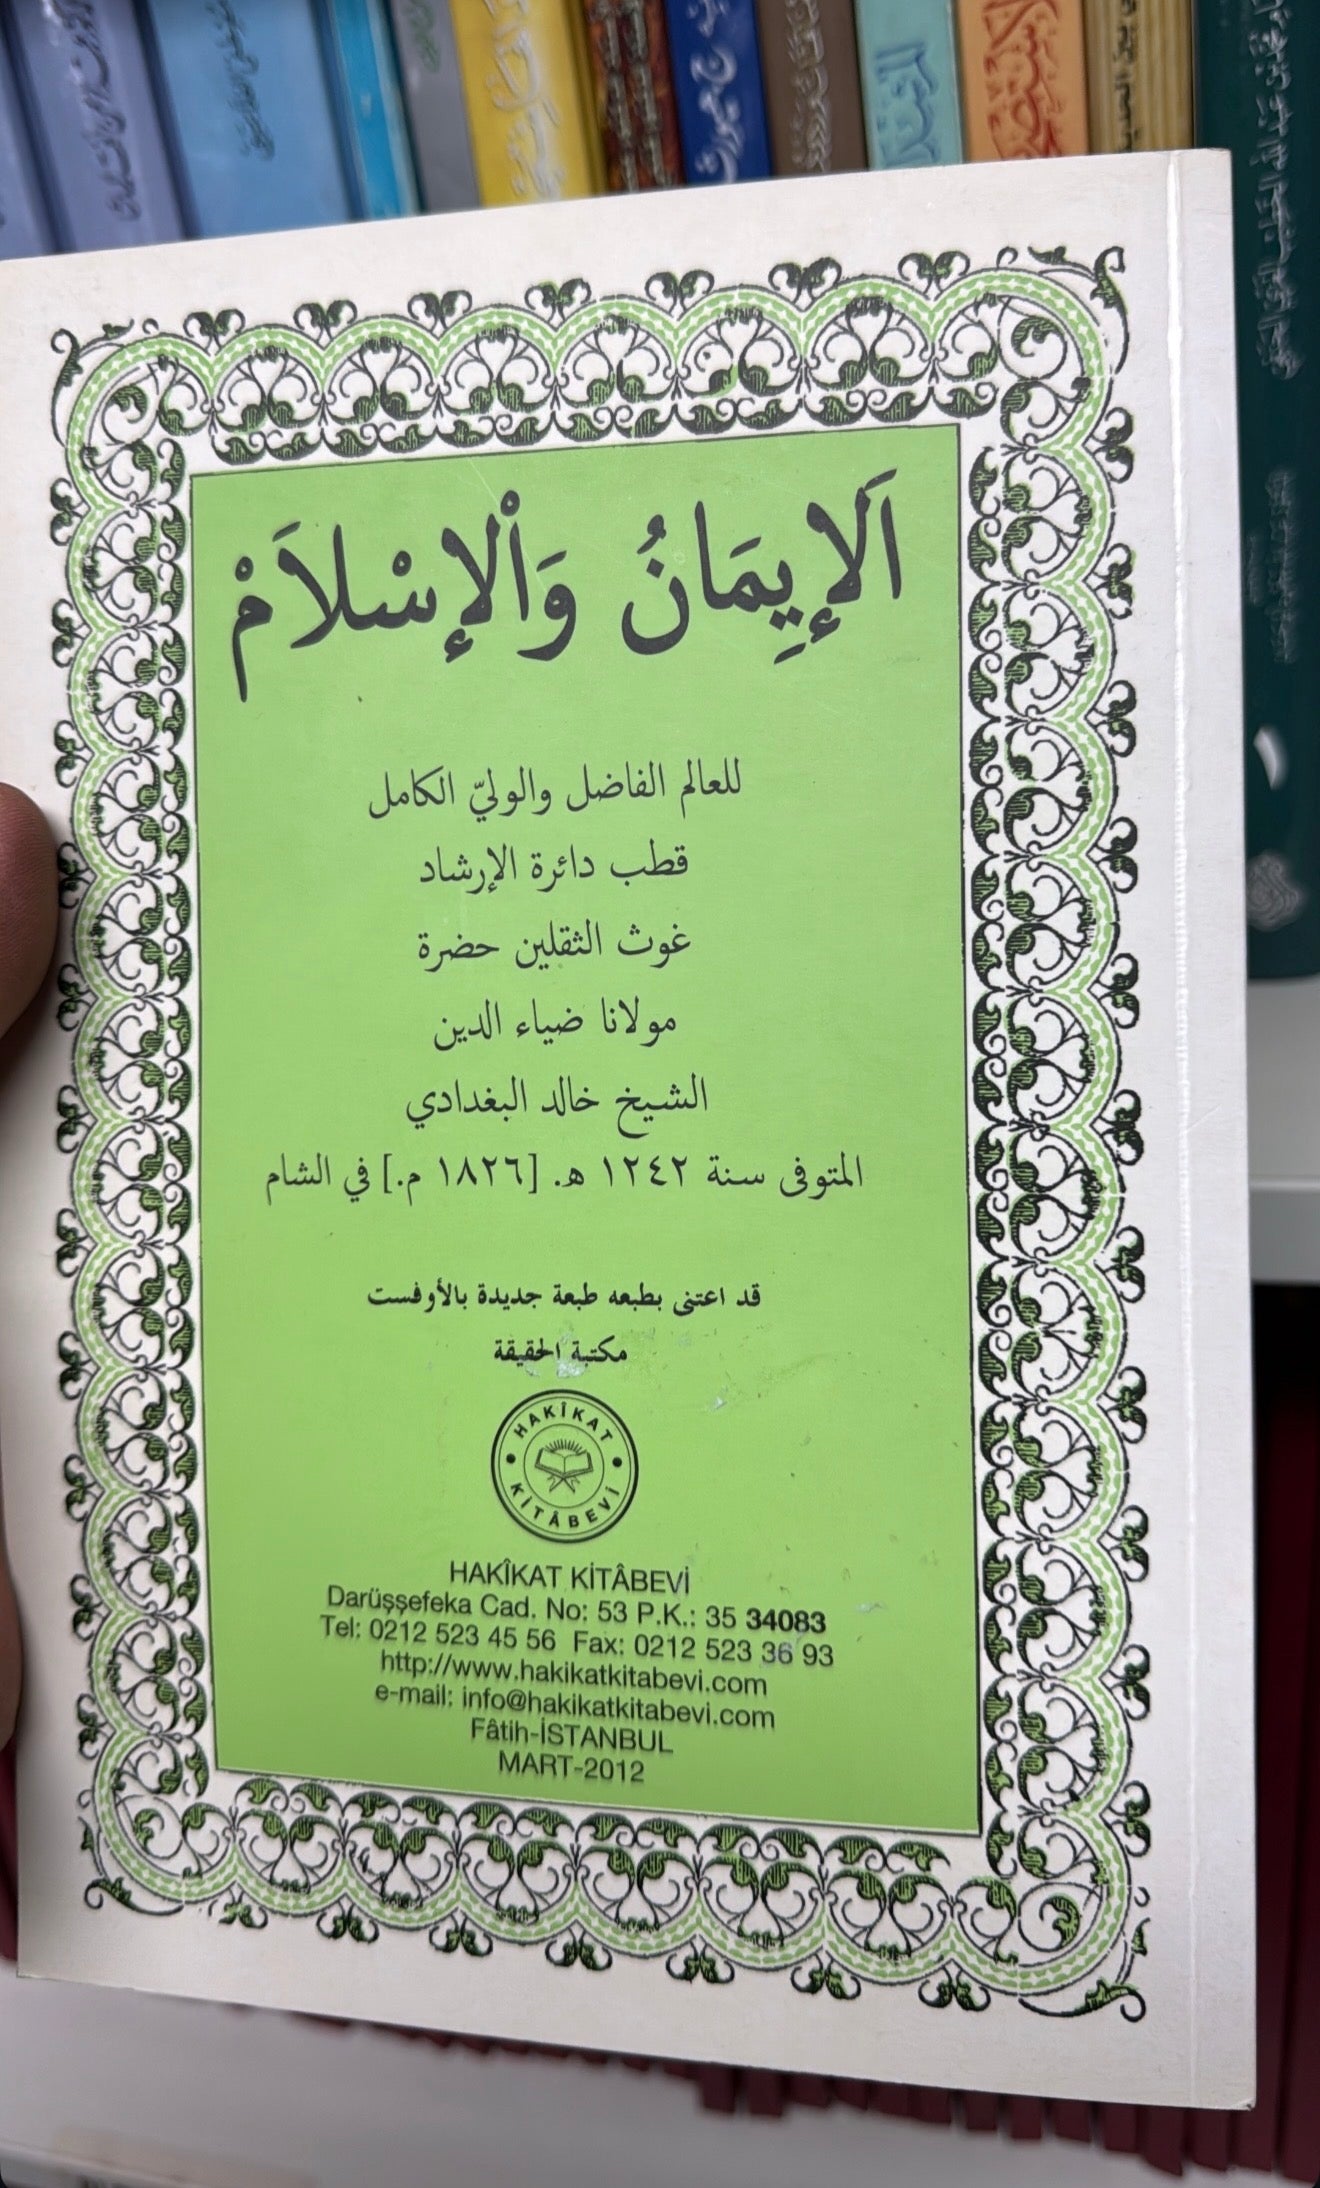 اَلإِيمَانُ وَاْلإِسْلاَمْ
للعالم الفاضل والوليّ الكامل
قطب دائرة الإرشاد
غوث الثقلين حضرة
مولانا ضياء الدين
الشيخ خالد البغدادي
المتوفى سنة ١٢٤٢ هـ. [١٨٢٦ م.] في الشام
قد اعتنى بطبعه طبعة جديدة بالأوفست
مكتبة الحقيقة
HAKÎKAT
KİTÂBEVİ
HAKÎKAT KİTÂBEVİ
Darüşşefeka Cad. No: 53 P.K.: 35 34083
Tel: 0212 523 45 56 Fax: 0212 523 36 93
http://www.hakikatkitabevi.com
e-mail: info@hakikatkitabevi.com
Fâtih-İSTANBUL
MART-2012